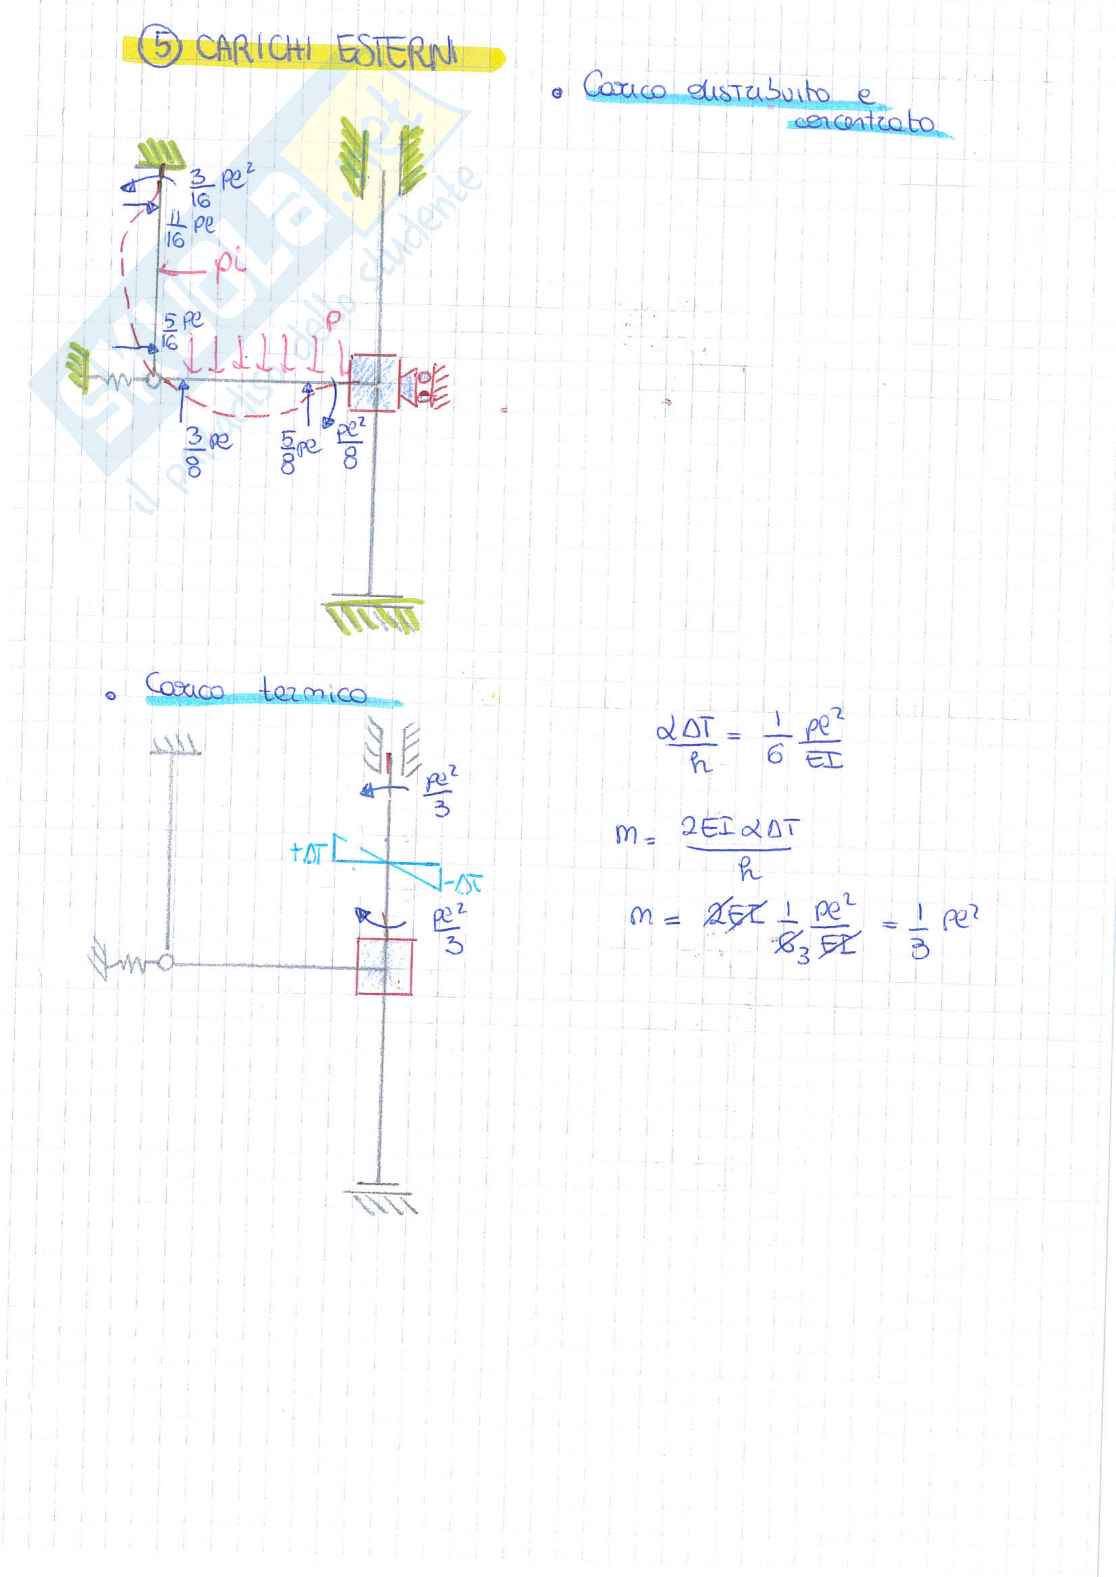 5 CARICHI ESTERNI
• Carico distribuito e
concentrato
3/16 pl²
11/16 pl
pl
5/16 pl
p
3/8 pl
5/8 pl
pl²/8
SKUOLA.net
il paradiso dello studente
• Carico termico
αΔT/h = 1/6 pl²/EI
pl²/3
m = 2EI αΔT/h
+ΔT
-ΔT
pl²/3
m = 2EI 1/6 3 pl²/EI = 1/3 pl²